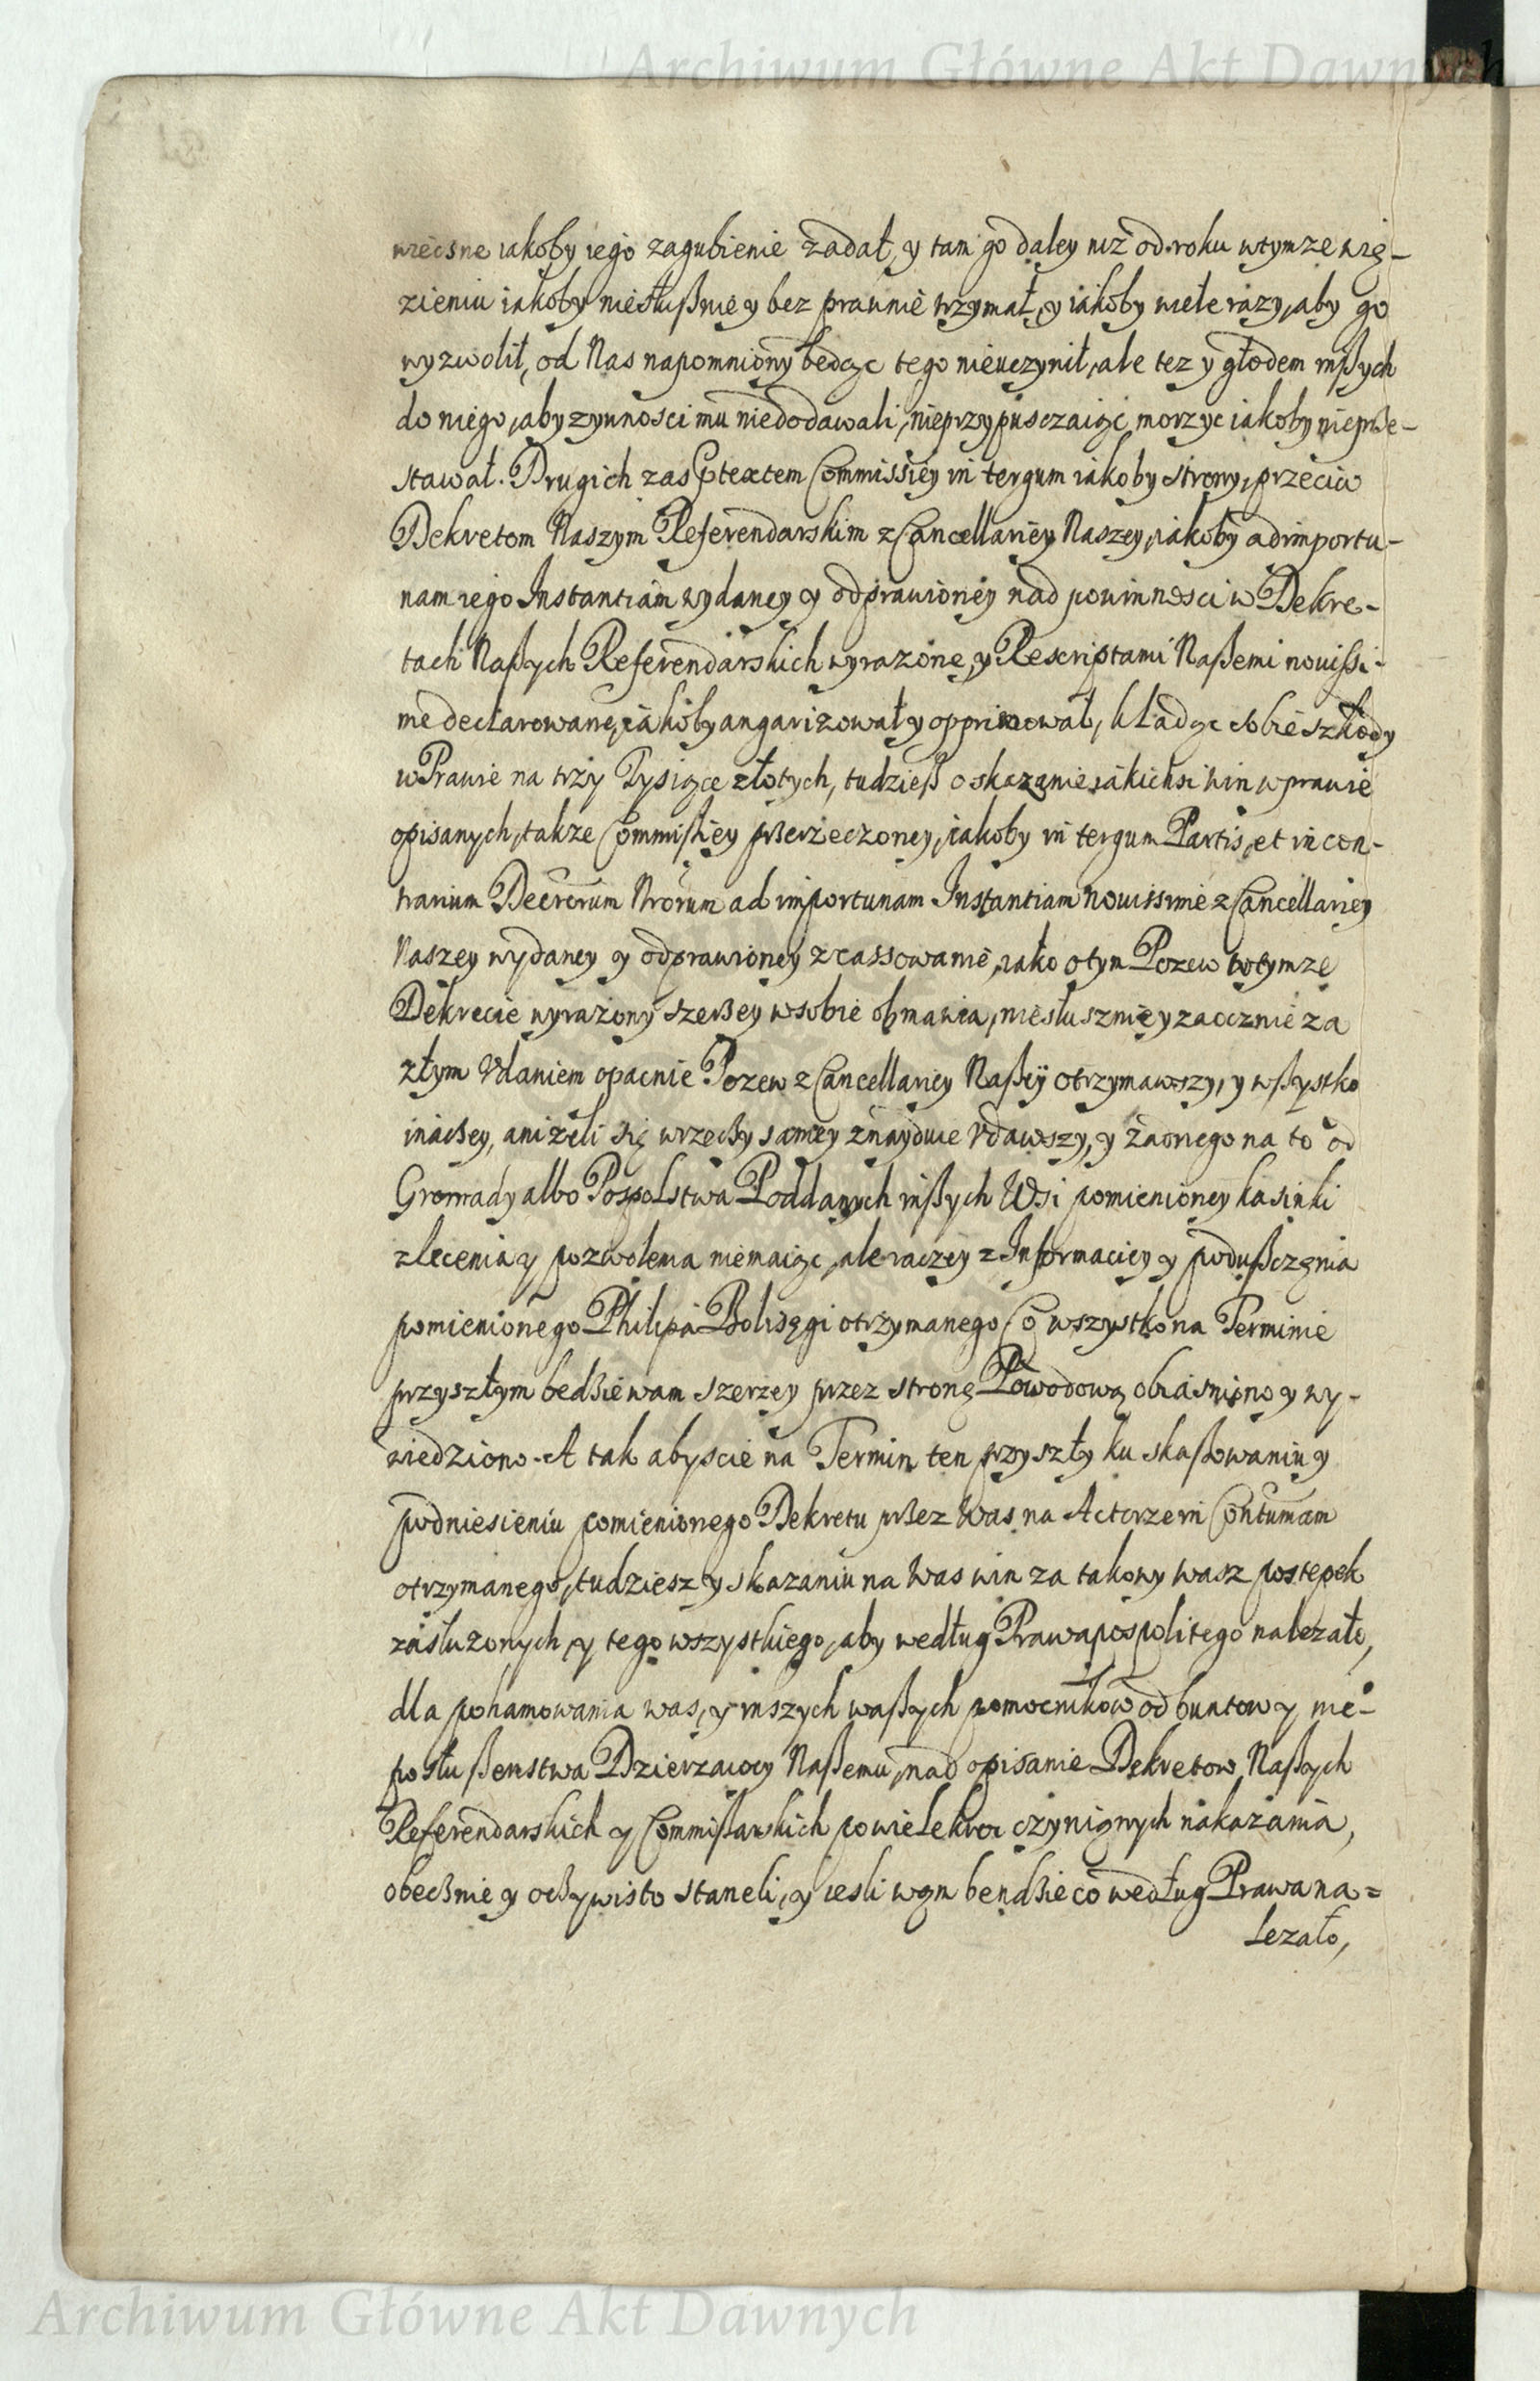 Archiwum Główne Akt Dawnych
wiecsne iakoby iego zagubienie zadał, y tam go daley niz od roku wtymze wię-
zieniu iakoby niesłußnie y bez prawnie trzymał, y iakoby wiele razy, aby go
wyzwolił, od Nas napomniony będąc tego nieuczynił, ale tez y głodem inßych
do niego, aby zywnosci mu niedodawali, nieprzypusczaiąc morzyc iakoby nieprze-
stawał. Drugich zas Ptextem Commissiey in tergum iakoby strony, przeciw
Dekretom Naszym Referendarskim z Cancellariey Naszey, iakoby ad importu-
nam iego Instantiam wydaney y odprawioney nad powinnosci w Dekre-
tach Naßych Referendarskich wyrazone, y Rescriptami Naßemi nouissi-
me declarowane, iakoby angarizował y opprimował, kładąc sobie szkody
w Prawie na trzy Tysiące złotych, tudzieß o skazanie iakichsi win w prawie
opisanych, takze Commissiey przerzeczoney, iakoby in tergum Partis, et in con-
trarium Decretorum Nrorum ad importunam Instantiam nouissime z Cancellariey
Naszey wydaney y odprawioney zcassowanie, iako o tym Pozew w tymze
Dekrecie wyrazony szerzey w sobie obmawia, niesłusznie y zaocznie za
złym Vdaniem opacnie Pozew z Cancellariey Naßey otrzymawszy, y wßystko
inaczey, anizeli się w rzeczy samey znayduie Vdawszy, y zadnego na to od
Gromady albo Pospolstwa Poddanych inßych Wsi pomienioney Kasinki
zlecenia y pozwolenia niemaiąc, ale raczey z Informaciey y podußczenia
pomienionego Philipa Bolisęgi otrzymanego Co wszystko na Terminie
przyszłym będzie wam szerzey przez stronę Powodową obiasniono y wy-
wiedziono. A tak abyscie na Termin ten przyszły ku skaßowaniu y
podniesieniu pomienionego Dekretu przez Was na Actorze in Contumam
otrzymanego, tudziesz y skazaniu na Was win za takowy wasz postępek
zasłuzonych, y tego wszystkiego, aby według Prawa pospolitego nalezało,
dla pohamowania was, y inszych waßych pomocnikow od buntow y nie-
posłußenstwa Dzierzawcy Naßemu, nad opisanie Dekretow Naßych
Referendarskich y Commißarskich powielekroc czynionych nakazania,
obecznie y oczywisto staneli, y iesli wąm bendzie co według Prawa na=
lezało,
Archiwum Główne Akt Dawnych